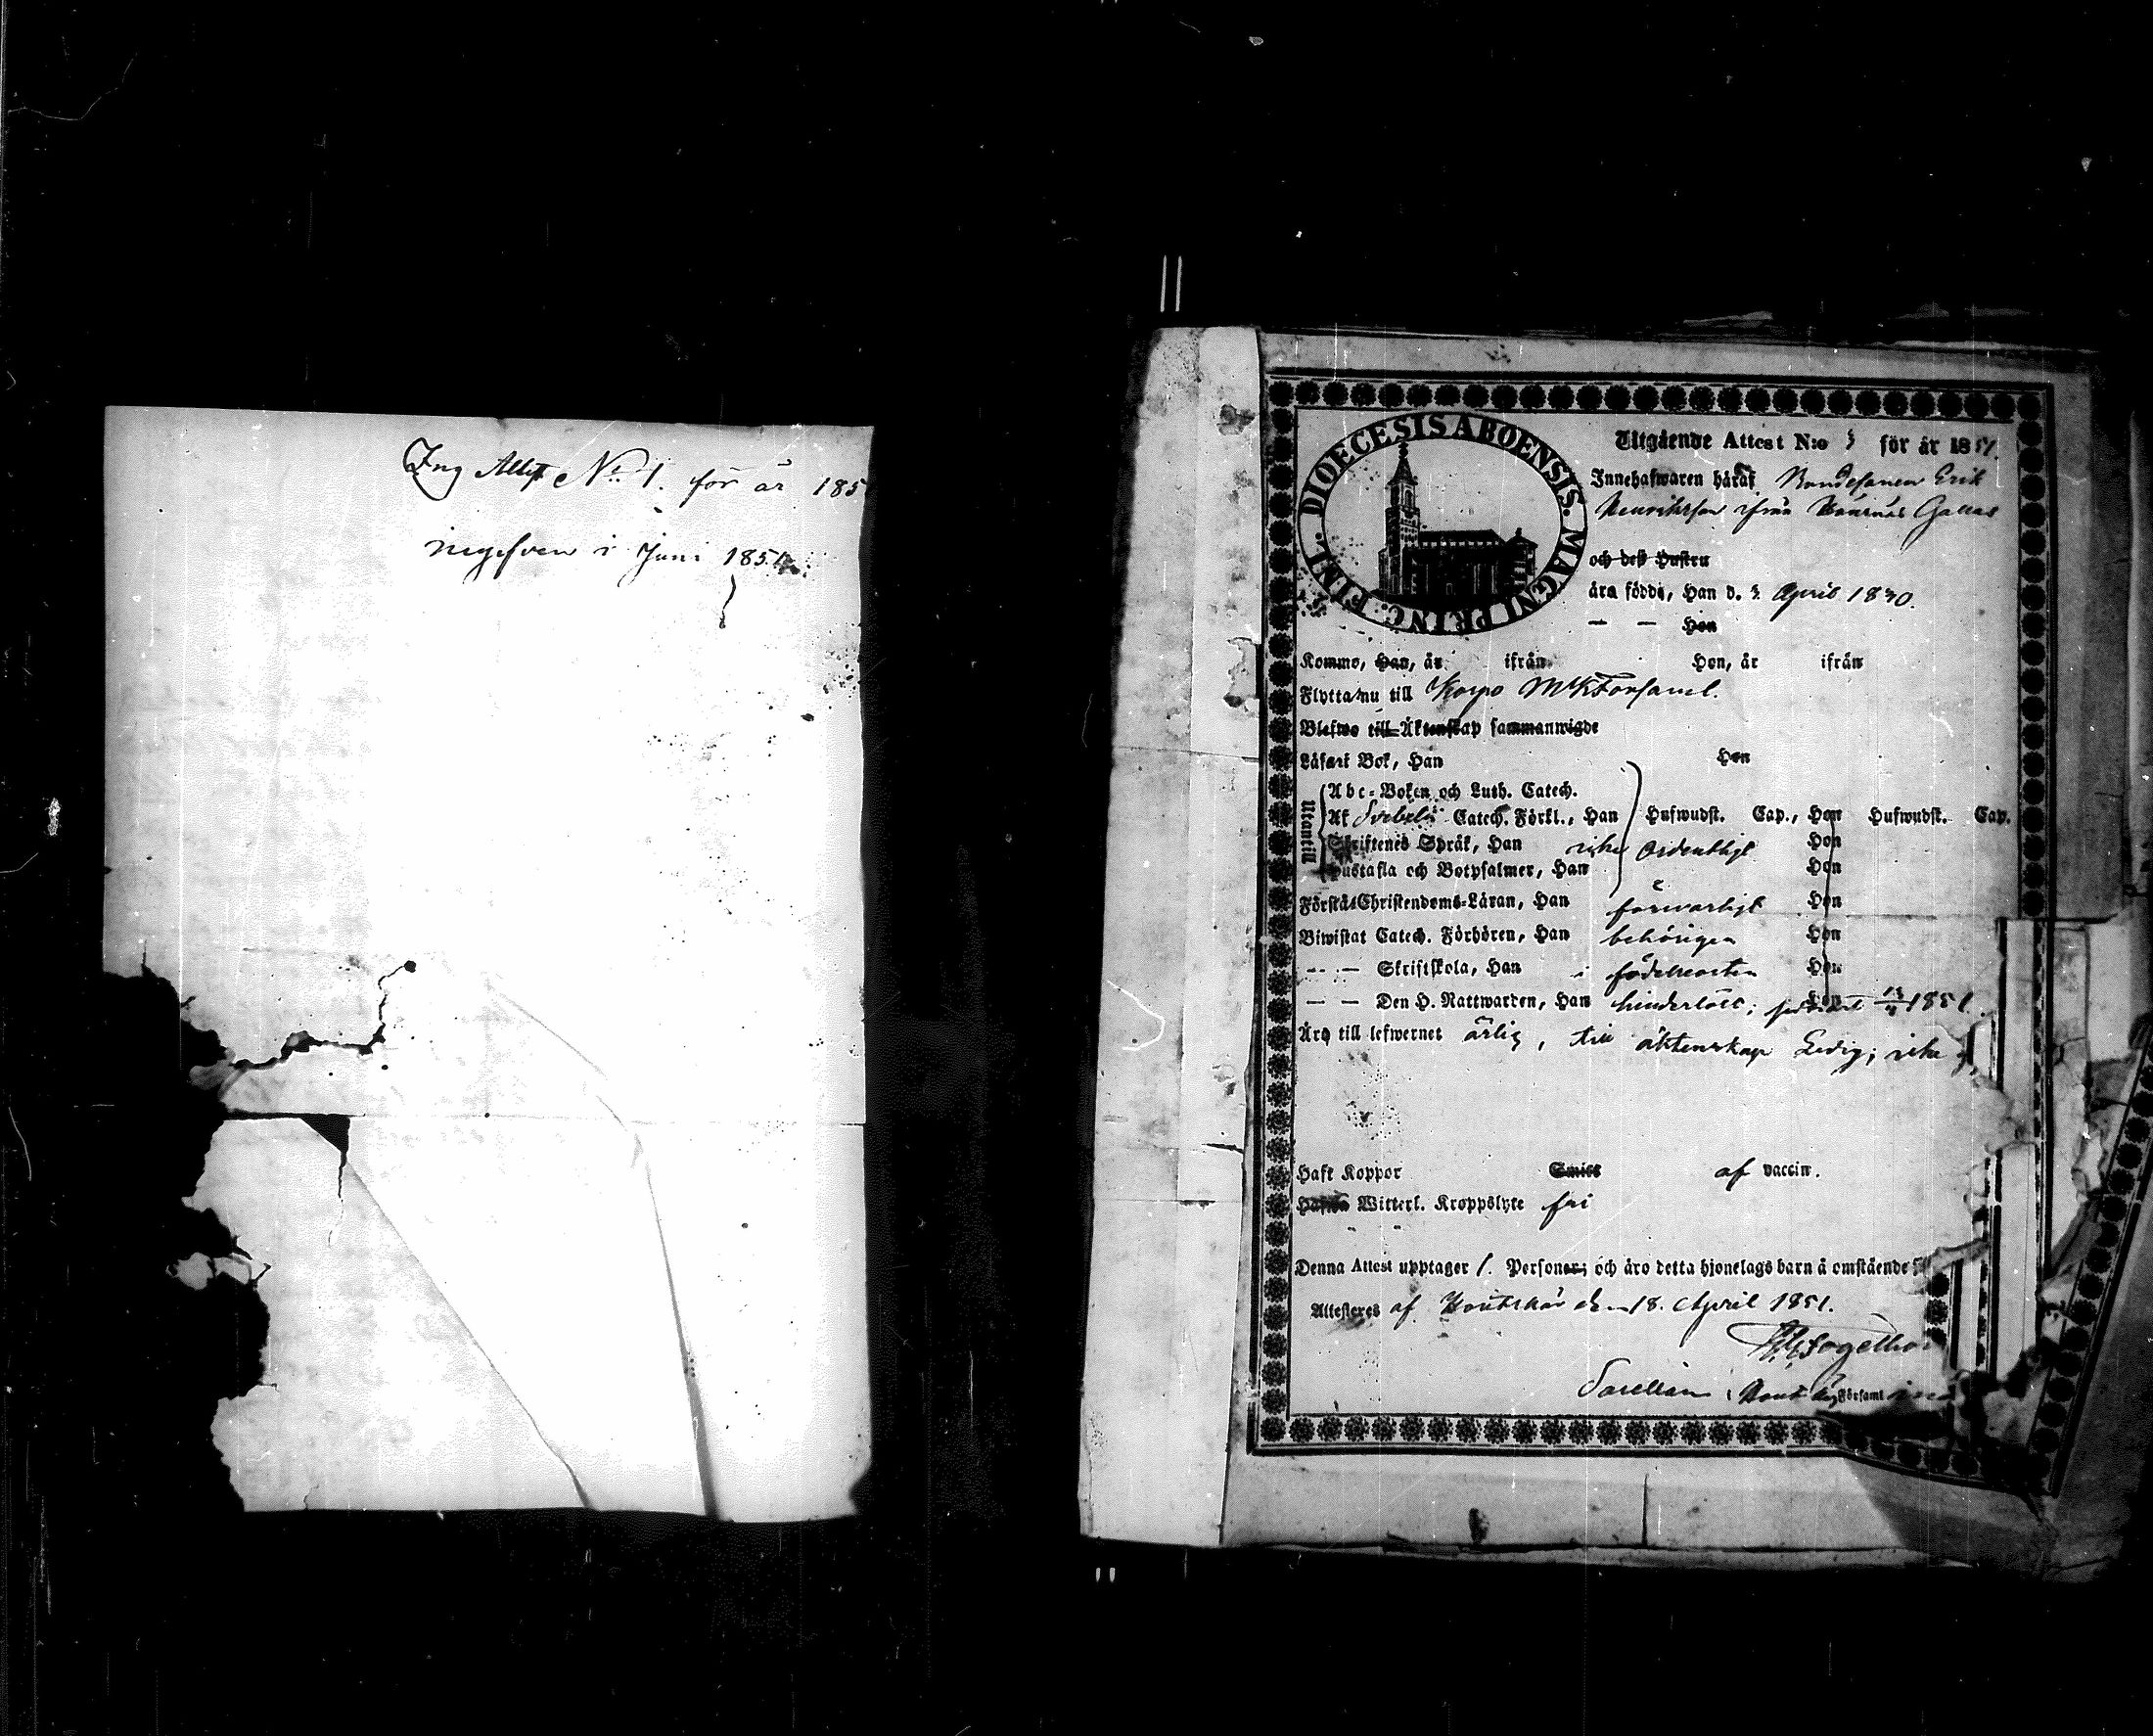 Ing Attest No 1. för år 185
ingifven i Juni 1851
DIOECESIS ABOENSIS. MAGNI PRINC. FINL.
Utgående Attest N:o 3 för år 1851.
Innehafwaren häraf, Bondesonen Erik
Henriksson ifrån Gallas
och dess Hustru
äro födde, Han d. 3 April 1830.
— — Hon
Kommo, Han, år ifrån Hon, år ifrån
Flytta nu till Korpo M K Församl.
Blefwo till Äktenskap sammanwigde
Läsa i Bok, Han Hon
Utantill
Abc-Boken och Luth. Catech.
Af Svebeli Catech. Förkl., Han Hufwudst. Cap., Hon Hufwudst. Cap.
Skriftenes Språk, Han icke Ordentligt Hon
Hustafla och Botpsalmer, Han Hon
Förstå Christendoms-Läran, Han försvarligt Hon
Biwistat Catech. Förhören, Han behörigen Hon
— — Skriftskola, Han i födelseorten Hon
— — Den H. Nattwarden, Han hinderlöst; Hon 1851.
Äro till lefwernet ärlig, till äktenskap Ledig; icke
Haft Koppor Smitt af vaccin.
Hafwa Witterl. Kroppslyte fri
Denna Attest upptager 1. Personer; och äro detta hjonelags barn å omstående
Attesteres af Houtskär den 18. April 1851.
Sacellan i Församl